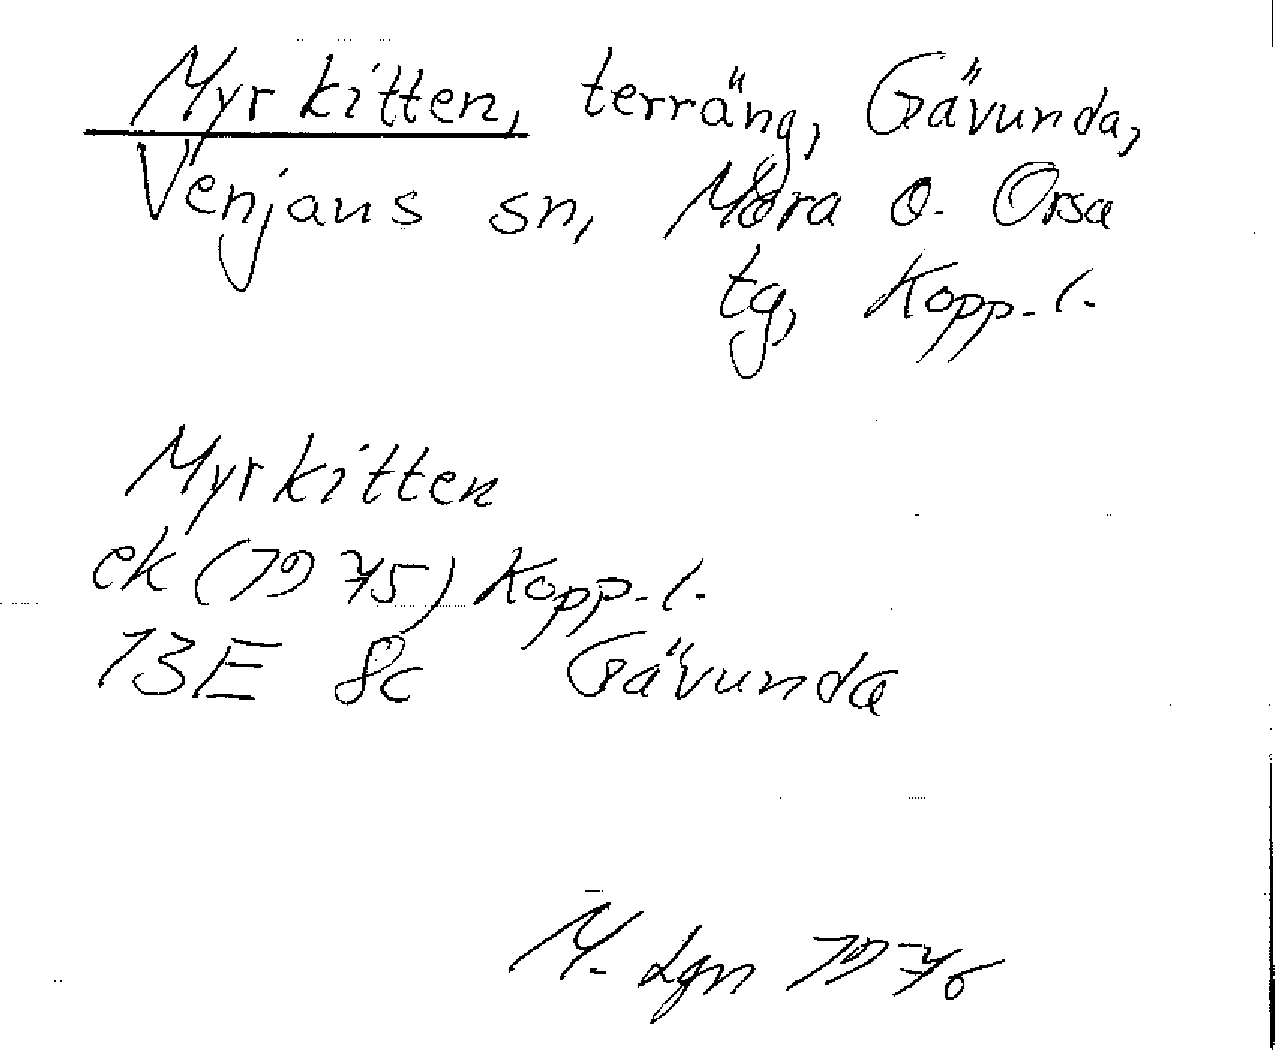 Myrkitten, terräng, Gävunda,
Venjans sn, Mora o. Orsa
tg, Kopp. l.
Myrkitten
ek (1975) Kopp. l.
13E 8c Gävunda
M. Lgn 1976